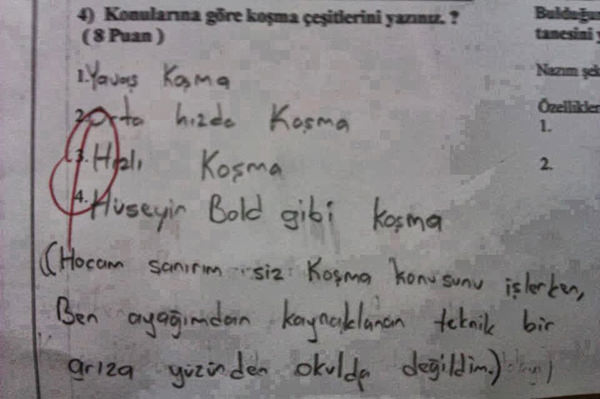 4) Konularına göre koşma çeşitlerini yazınız. ?
( 8 Puan )
1. Yavaş Koşma
2. Orta hızda Koşma
3. Hızlı Koşma
4. Hüseyin Bold gibi koşma
(Hocam sanırım siz Koşma konusunu işlerken,
Ben ayağımdan kaynaklanan teknik bir
arıza yüzünden okulda değildim.)
tanesini y
Nazım şek
Özellikler
1.
2.